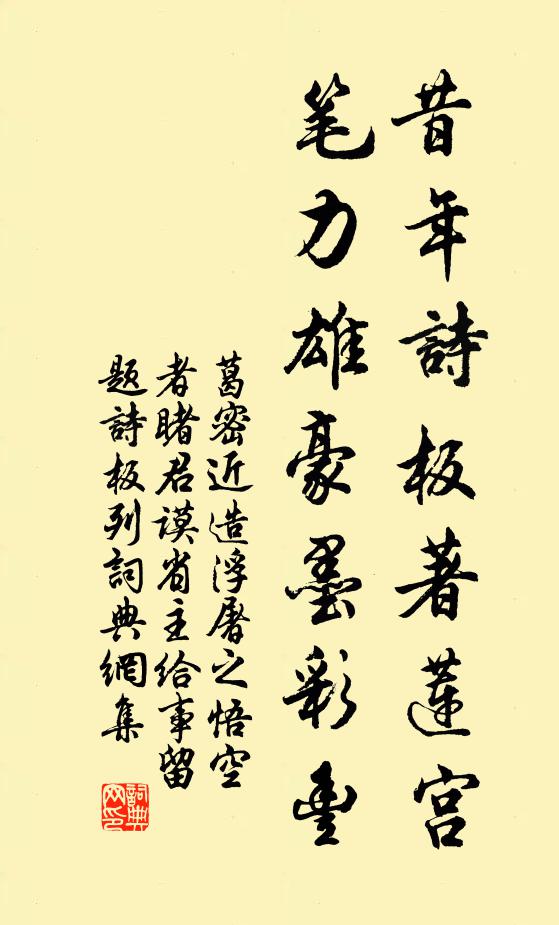 昔年詩板著蓮宫
笔力雄豪墨彩豊
葛密近造浮屠之悟空
者睹君謨省主给事留
题詩板列詞典網集
詞典網印